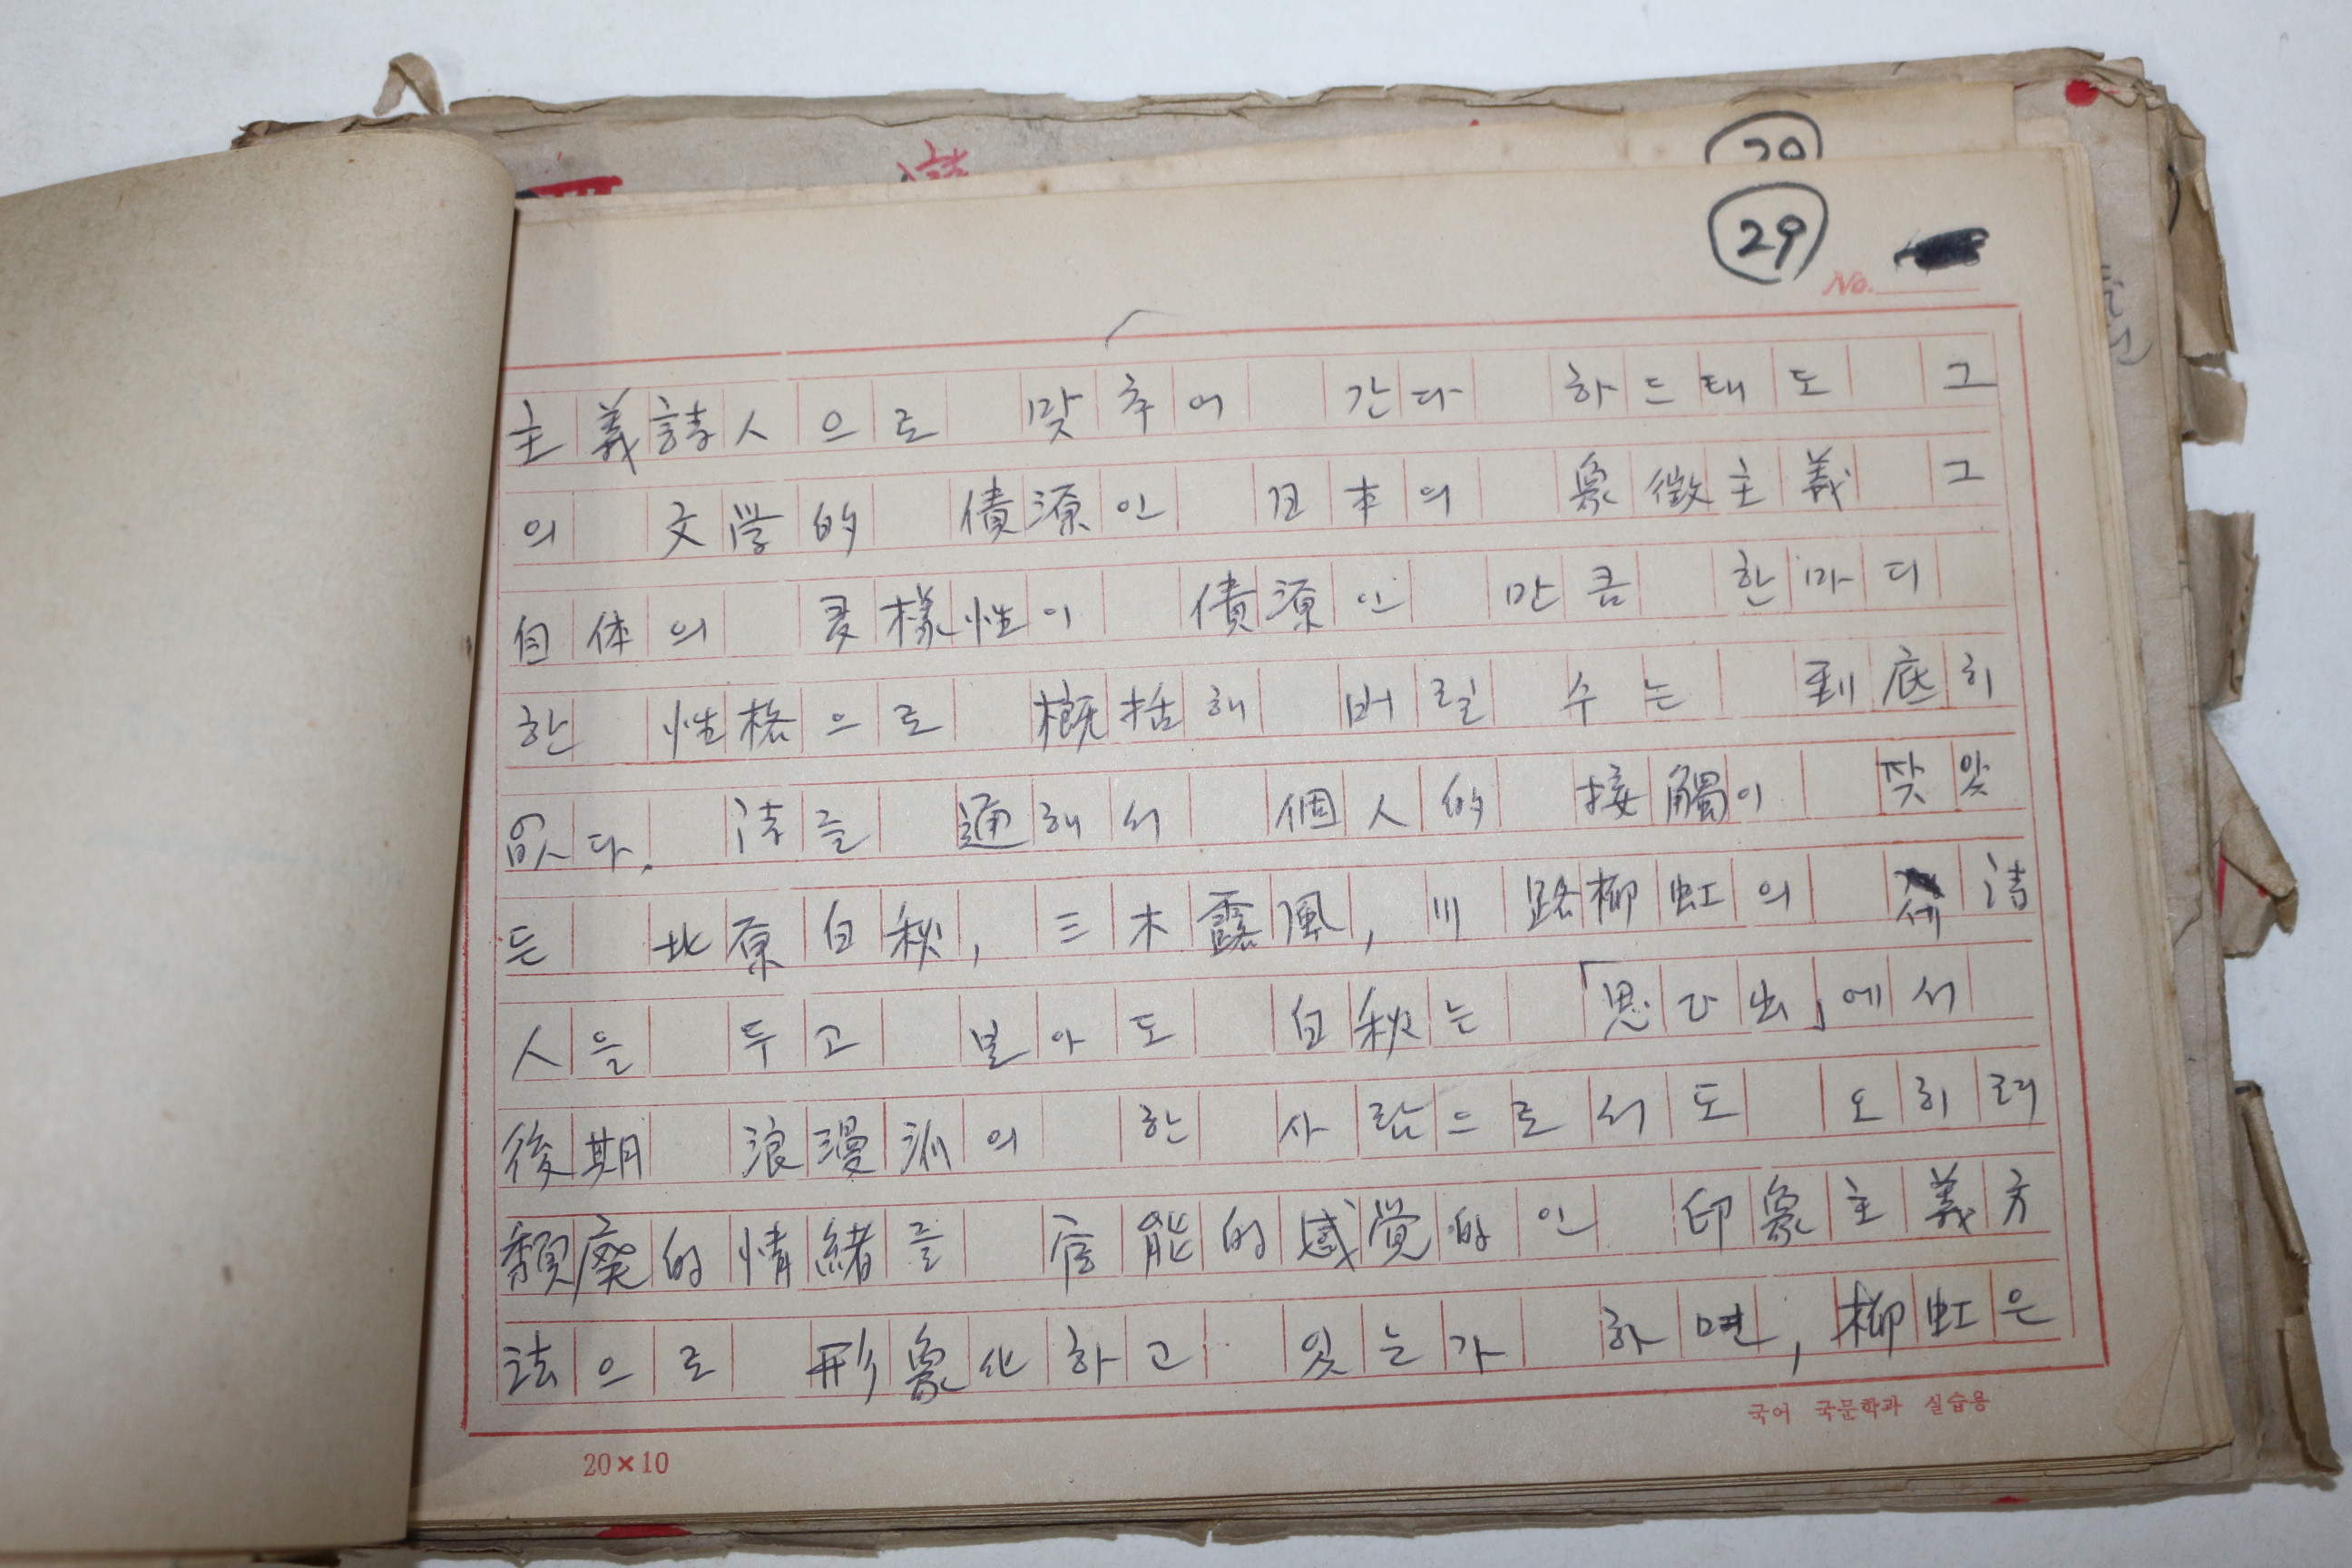 29
No.
主義詩人으로 맞추어 간다 하드태도 그
의 文学的 債源인 日本의 象徵主義 그
自体의 多樣性이 債源인 만큼 한마디
한 性格으로 槪括해 버릴 수는 到底히
없다. 詩를 通해서 個人的 接觸이 잣앗
든 北原白秋, 三木露風, 川路柳虹의 세詩
人을 두고 보아도 白秋는 「思ひ出」에서
後期 浪漫派의 한 사람으로서도 오히려
頹廢的情緖를 官能的感覚的인 印象主義方
法으로 形象化하고 잇는가 하면, 柳虹은
국어 국문학과 실습용
20×10